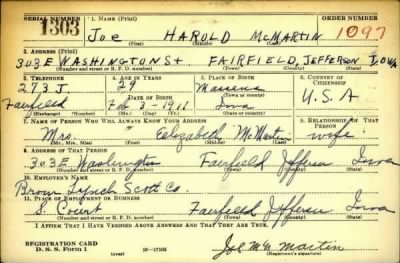 SERIAL NUMBER
1303
1. NAME (Print)
ORDER NUMBER
JOE HAROLD MCMARTIN 1097
(First) (Middle) (Last)
2. ADDRESS (Print)
303 E WASHINGTON St FAIRFIELD, JEFFERSON IOWA
(Number and street or R. F. D. number) (Town) (County) (State)
3. TELEPHONE
4. AGE IN YEARS
5. PLACE OF BIRTH
6. COUNTRY OF CITIZENSHIP
273 J. 29 Massena
DATE OF BIRTH (Town or county)
Fairfield Feb 3-1911 Iowa U.S.A
(Exchange) (Number) (Mo.) (Day) (Yr.) (State or country)
7. NAME OF PERSON WHO WILL ALWAYS KNOW YOUR ADDRESS
8. RELATIONSHIP OF THAT PERSON
Mrs. Elizabeth McMartin wife
(Mr., Mrs., Miss) (First) (Middle) (Last)
9. ADDRESS OF THAT PERSON
303 E. Washington Fairfield Jefferson Iowa
(Number and street or R. F. D. number) (Town) (County) (State)
10. EMPLOYER'S NAME
Brown Lynch Scott Co.
11. PLACE OF EMPLOYMENT OR BUSINESS
S. Court Fairfield Jefferson Iowa
(Number and street or R. F. D. number) (Town) (County) (State)
I AFFIRM THAT I HAVE VERIFIED ABOVE ANSWERS AND THAT THEY ARE TRUE.
REGISTRATION CARD
D. S. S. Form 1
(over)
16-17105
Joe Mc Martin
(Registrant's signature)